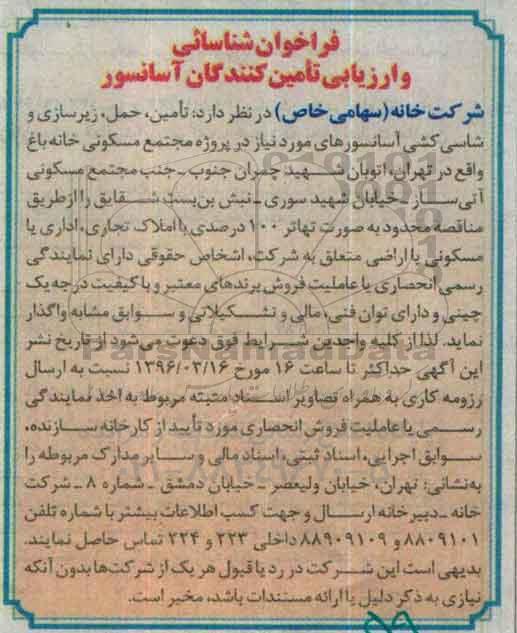 فراخوان شناسائی
و ارزیابی تأمین کنندگان آسانسور
شرکت خانه (سهامی خاص) در نظر دارد؛ تأمین، حمل، زیرسازی و
شاسی کشی آسانسورهای مورد نیاز در پروژه مجتمع مسکونی خانه باغ
واقع در تهران، اتوبان شهید چمران جنوب ـ جنب مجتمع مسکونی
آتی ساز ـ خیابان شهید سوری ـ نبش بن بست شقایق را از طریق
مناقصه محدود به صورت تهاتر ۱۰۰ درصدی با املاک تجاری، اداری یا
مسکونی یا اراضی متعلق به شرکت، اشخاص حقوقی دارای نمایندگی
رسمی انحصاری یا عاملیت فروش برندهای معتبر و با کیفیت درجه یک
چینی و دارای توان فنی، مالی و تشکیلاتی و سوابق مشابه واگذار
نماید. لذا از کلیه واجدین شرایط فوق دعوت می شود از تاریخ نشر
این آگهی حداکثر تا ساعت ۱۶ مورخ ۱۳۹۶/۰۳/۱۶ نسبت به ارسال
رزومه کاری به همراه تصاویر اسناد مثبته مربوط به اخذ نمایندگی
رسمی یا عاملیت فروش انحصاری مورد تأیید از کارخانه سازنده،
سوابق اجرایی، اسناد ثبتی، اسناد مالی و سایر مدارک مربوطه را
به نشانی: تهران، خیابان ولیعصر ـ خیابان دمشق ـ شماره ۸ ـ شرکت
خانه ـ دبیرخانه ارسال و جهت کسب اطلاعات بیشتر با شماره تلفن
۸۸۰۹۱۰۱ و ۸۸۹۰۹۱۰۹ داخلی ۲۲۳ و ۲۲۴ تماس حاصل نمایند.
بدیهی است این شرکت در رد یا قبول هر یک از شرکت ها بدون آنکه
نیازی به ذکر دلیل یا ارائه مستندات باشد، مخیر است.
ParsNamadData